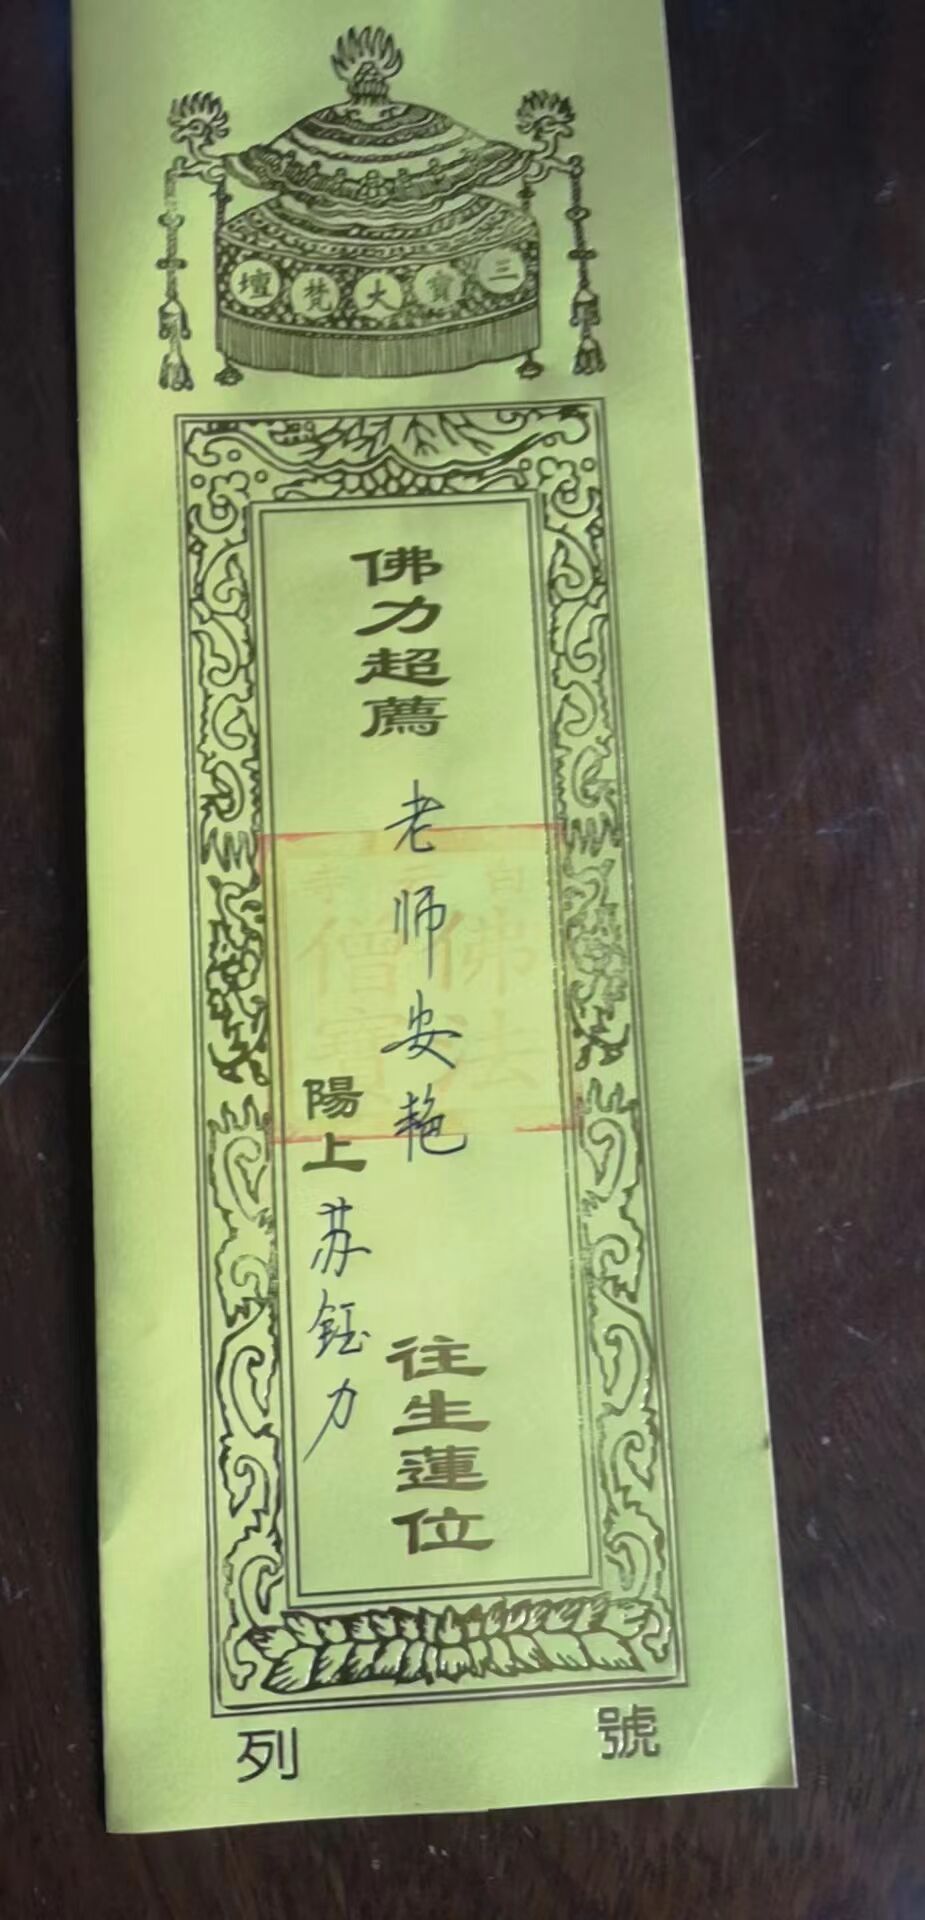 三寶大梵壇
佛力超薦 老师安艳 往生蓮位
陽上 苏钰力
佛法
僧寶
號
列